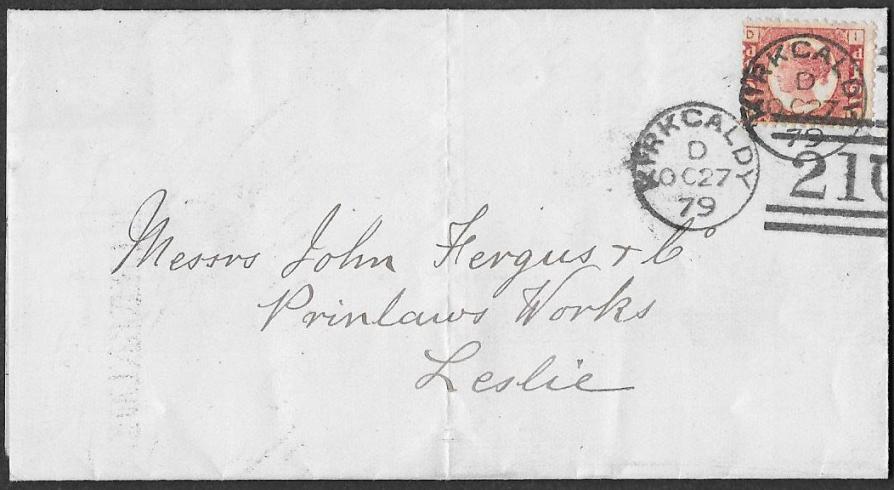 D I
d
KIRKCALDY
D
OC27
79
KIRKCALDY
D
OC27
79
21
Messrs John Fergus & Co
Prinlaws Works
Leslie